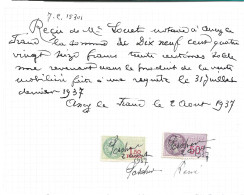 Reçu de Me Louet notaire à Anzy
le Franc la somme de Dix neuf cent quatre
vingt seize francs trente centimes solde
me revenant dans le produit de la vente
mobilière faite à ma requête le 31 juillet
dernier 1937
Anzy le Franc le 2 Aout 1937